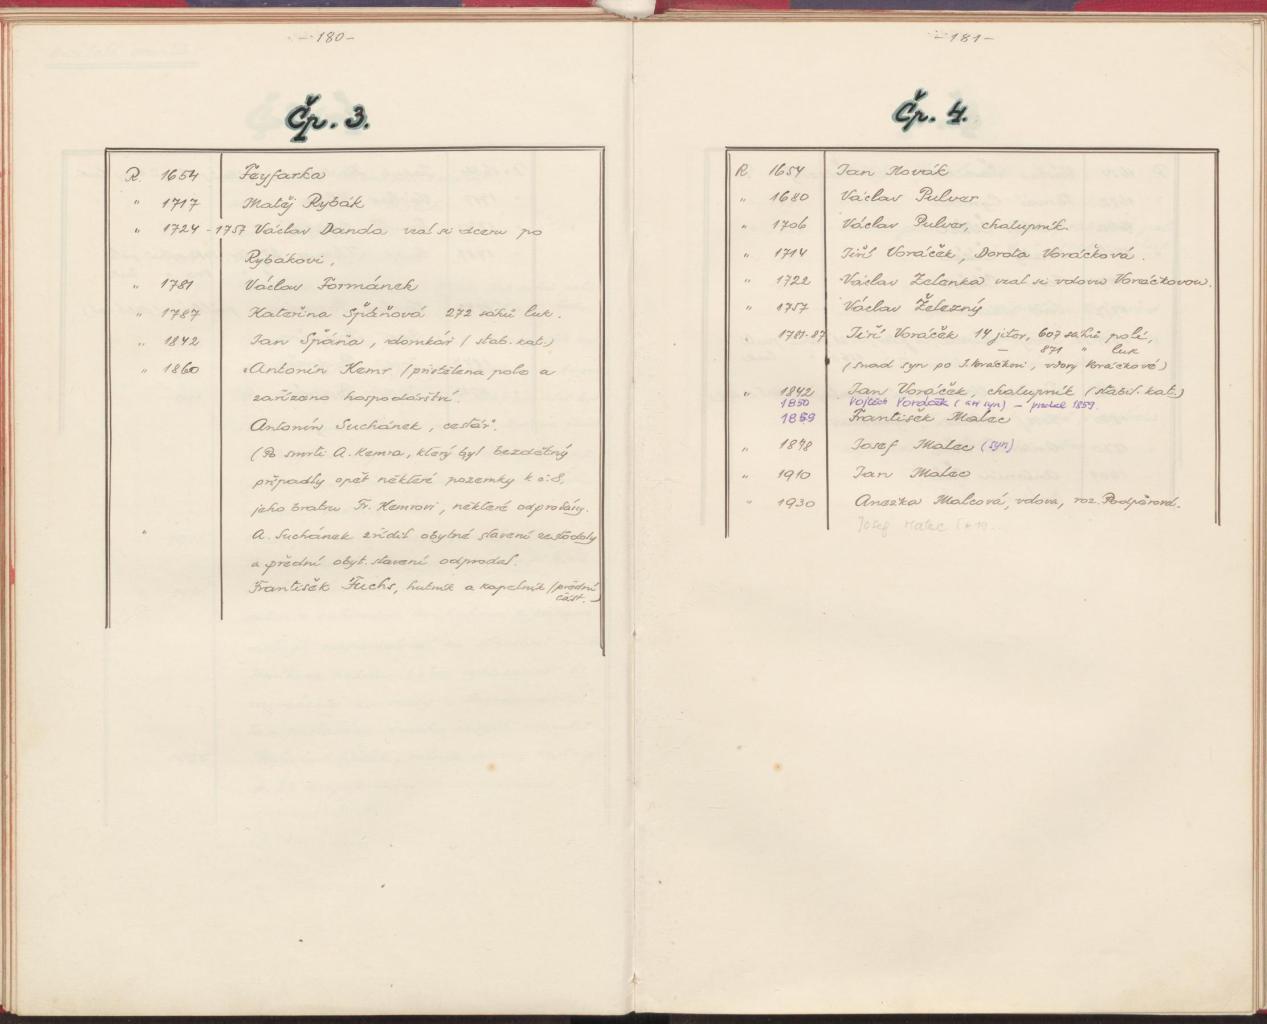 - 180 -
Čp. 3.
R 1654 Feyfarka
" 1717 Matěj Rybák
" 1724 - 1757 Václav Danda vzal si dceru po
Rybákovi,
" 1781 Václav Formánek
" 1787 Kateřina Špáňová 272 sáhů luk.
" 1842 Jan Špáňa, domkář / stab. kat.)
" 1860 Antonín Kemr / přidělena pole a
zařízeno hospodářství.
Antonín Suchánek, cestář.
(Po smrti A. Kemra, který byl bezdětný
připadly opět některé pozemky k č. 8,
jeho bratru Fr. Kemrovi, některé odprodány.
" A. Suchánek zřídil obytné stavení ze stodoly
a přední obyt. stavení odprodal.
František Fuchs, hutník a kapelník / přední
část. -
- 181 -
Čp. 4.
R 1654 Jan Novák
" 1680 Václav Pulver
" 1706 Václav Pulver, chalupník.
" 1714 Jiří Voráček, Dorota Voráčková.
" 1722 Václav Zelenka vzal si vdovu Voráčkovou.
" 1757 Václav Železný
" 1781-87 Jiří Voráček 14 jiter, 607 sáhů polí,
— 871 " luk
(snad syn po J. Voráčkovi, vdovy Voráčkové)
" 1842 Jan Voráček, chalupník (stabil. kat.)
1850 Vojtěch Voráček ( syn) - prodal 1859.
1859 František Malec
" 1878 Josef Malec (syn)
" 1910 Jan Malec
" 1930 Anežka Malcová, vdova, roz.
Josef Malec